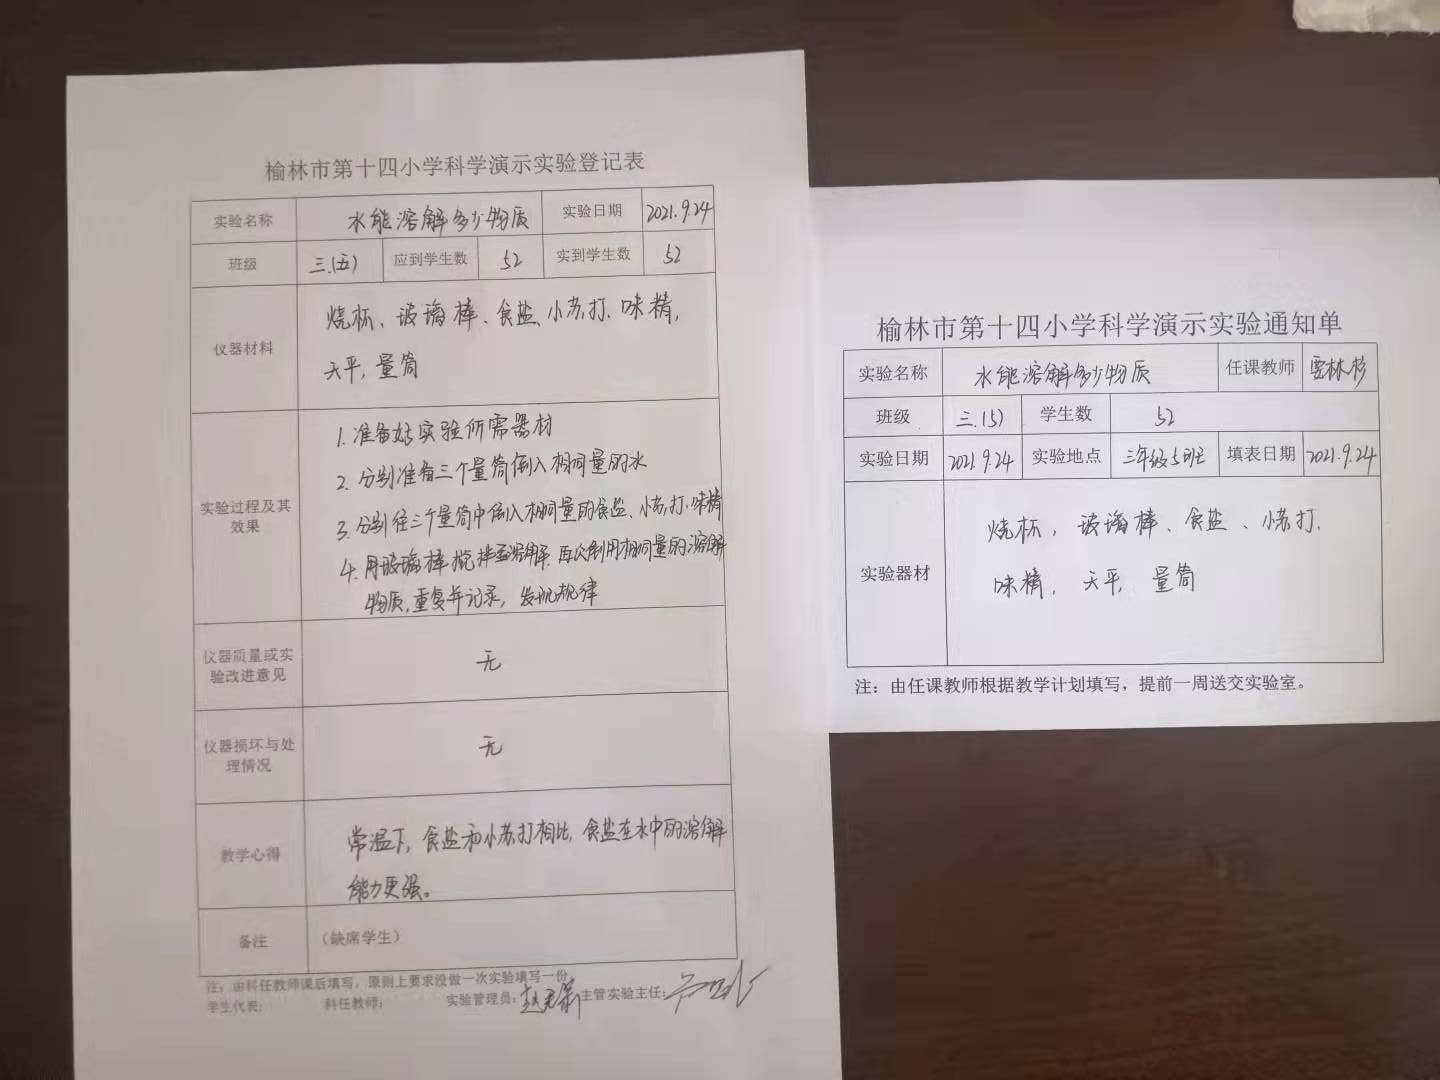 榆林市第十四小学科学演示实验登记表
实验名称 水能溶解多少物质 实验日期 2021.9.24
班级 三.(五) 应到学生数 52 实到学生数 52
仪器材料
烧杯、玻璃棒、食盐、小苏打、味精,
天平, 量筒
实验过程及其
效果
1. 准备好实验所需器材
2. 分别准备三个量筒倒入相同量的水
3. 分别往三个量筒中倒入相同量的食盐、小苏打、味精
4. 用玻璃棒搅拌至溶解. 再次利用相同量的溶解
物质, 重复并记录, 发现规律
仪器质量或实
验改进意见
无
仪器损坏与处
理情况
无
教学心得
常温下, 食盐和小苏打相比, 食盐在水中的溶解
能力更强。
备注 (缺席学生)
注: 由科任教师课后填写, 原则上要求没做一次实验填写一份
学生代表: 科任教师: 实验管理员: 主管实验主任:
榆林市第十四小学科学演示实验通知单
实验名称 水能溶解多少物质 任课教师 林杉
班级 三.(5) 学生数 52
实验日期 2021.9.24 实验地点 三年级5班 填表日期 2021.9.24
实验器材
烧杯, 玻璃棒、食盐、小苏打.
味精, 天平, 量筒
注: 由任课教师根据教学计划填写, 提前一周送交实验室。